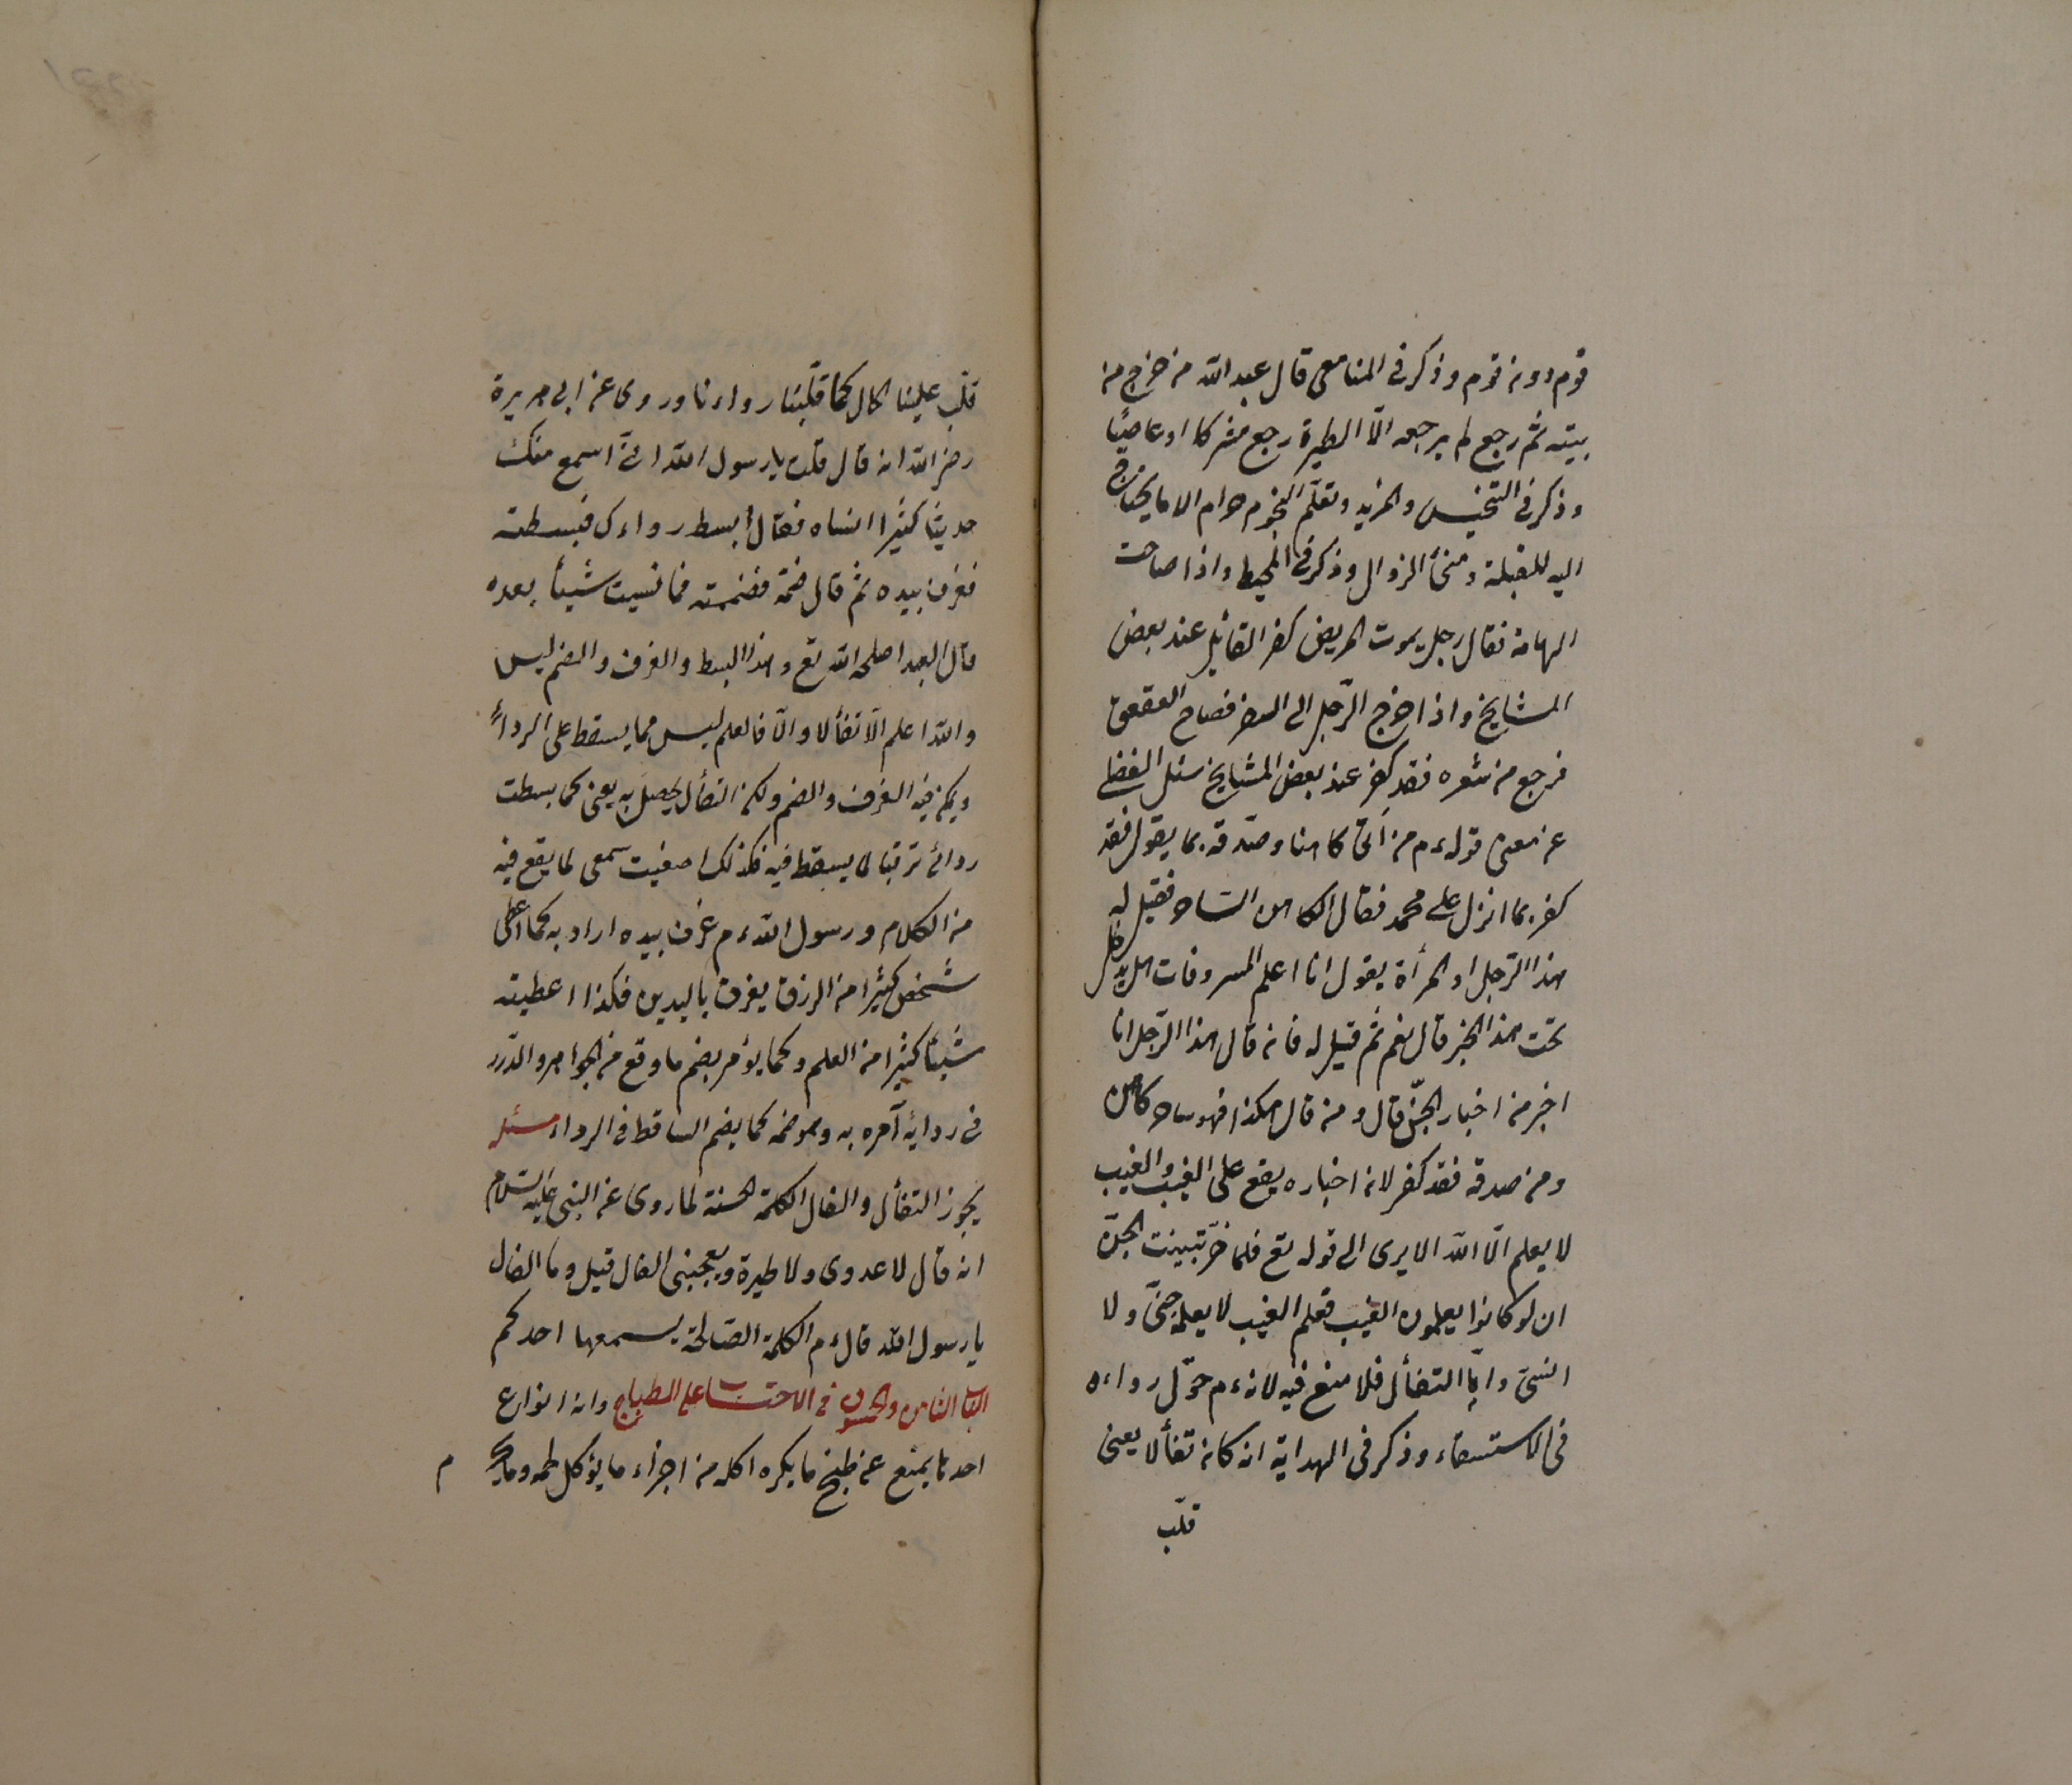 قوم دون قوم وذكر فى المنامعى قال عبد الله من خرج من
بيته ثم رجع لم يرجعه الّا الطيرة رجع مشركا او عاصيًا
وذكر فى التجنيس والمزيد وتعلّم النجوم حرام الا ما يحتاج
اليه للقبلة وفئ الزوال وذكر فى المحيط واذا صاحت
الهامة فقال رجل يموت المريض كفر القائل عند بعض
المشايخ واذا خرج الرّجل الى السفر فصاح العقعق
فرجع من سفره فقد كفر عند بعض المشايخ سئل الفضلى
عن معنى قوله م من اتى كاهنا وصدّقه بما يقول فقد
كفر بما انزل على محمد فقال الكاهن الساحر فقيل له
هذا الرّجل او المرأة يقول انا اعلم المسروقات هل يدخل
تحت هذا الخبر قال نعم ثم قيل له فانه قال هذا الرّجل انا
اخبر من اخبار الجنّ قال ومن قال هكذا فهو ساحر كاهن
ومن صدقه فقد كفر لانه اخباره يقع على الغيب والغيب
لا يعلم الّا الله الا يرى الى قوله تع فلما خرّ تبينت الجنّ
ان لو كانوا يعلمون الغيب فعلم الغيب لا يعلمه جنّى ولا
انسىّ وامّا التفأل فلا منع فيه لانه م حوّل رداءه
فى الاستسقاء وذكر فى الهداية انه كان تفألا يعنى
قلّب
قلّب علينا الحال كما قلّبنا رداءنا وروى عن ابى هريرة
رضى الله انه قال قلت يا رسول الله انّى اسمع منك
حديثا كثيرا انساه فقال ابسط رداءك فبسطته
فغرف بيده ثم قال ضمّه فضممته فما نسيت شيئا بعده
قال العبد اصلحه الله تع وهذا البسط والغرف والضم ليس
والله اعلم الّا تفألا والّا فالعلم ليس مما يسقط على الرداء
ويمكن فيه الغرف والضم ولكن التفأل يحصل به يعنى كما بسطت
ردائى ترقبا لما يسقط فيه فكذلك اصغيت سمعى لما يقع فيه
من الكلام ورسول الله م غرف بيده اراد به كما اعطى
شخص كثيرا من الرزق يغرف باليدين فكذا اعطيته
شيئا كثيرا من العلم وكما يؤمر بضم ما وقع من الجواهر والدّرر
فى ردايه آمره به وبموضعه كما يضم الساقط فى الرداء مسئله
يجوز التفأل والفال الكلمة الحسنة لما روى عن النبى عليه السّلام
انه قال لا عدوى ولا طيرة ويعجبنى الفال قيل وما الفال
يا رسول الله قال م الكلمة الصّالحة يسمعها احدكم
الباب الثامن والخمسون فى الاحتساب على الطباخ وانه انواع
احدها يمنع عن طبخ ما يكره اكله من اجزاء ما يؤكل لحمه وما
م